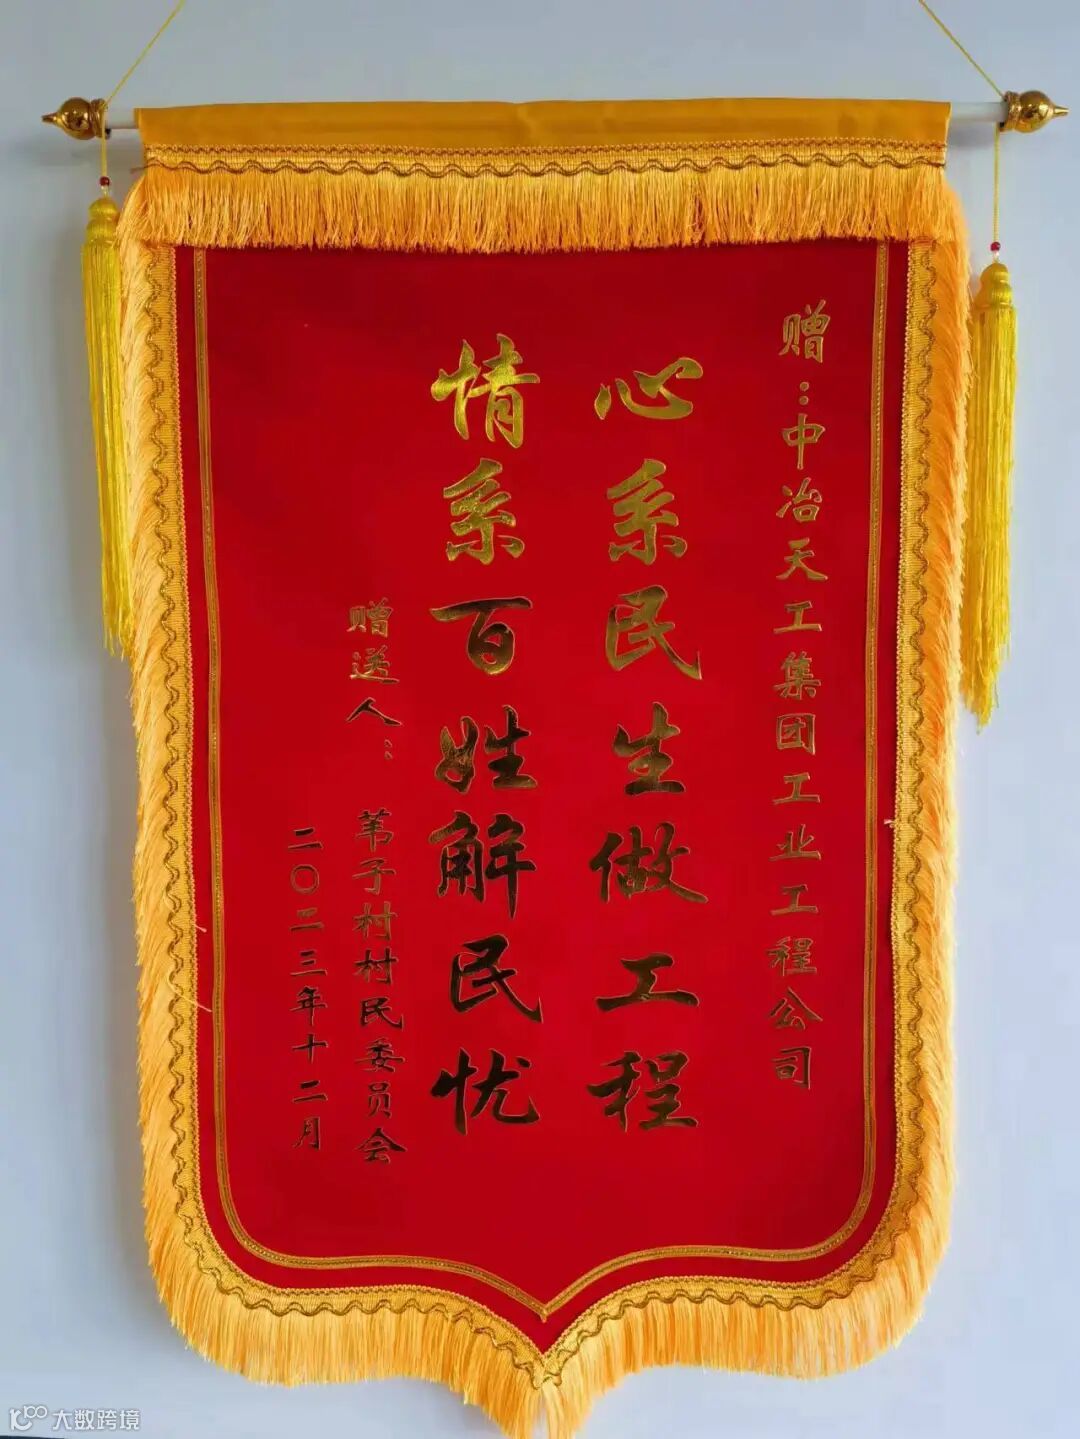 赠：中冶天工集团工业工程公司
心系民生做工程
情系百姓解民忧
赠送人：苇子村村民委员会
二〇二三年十二月
大数跨境